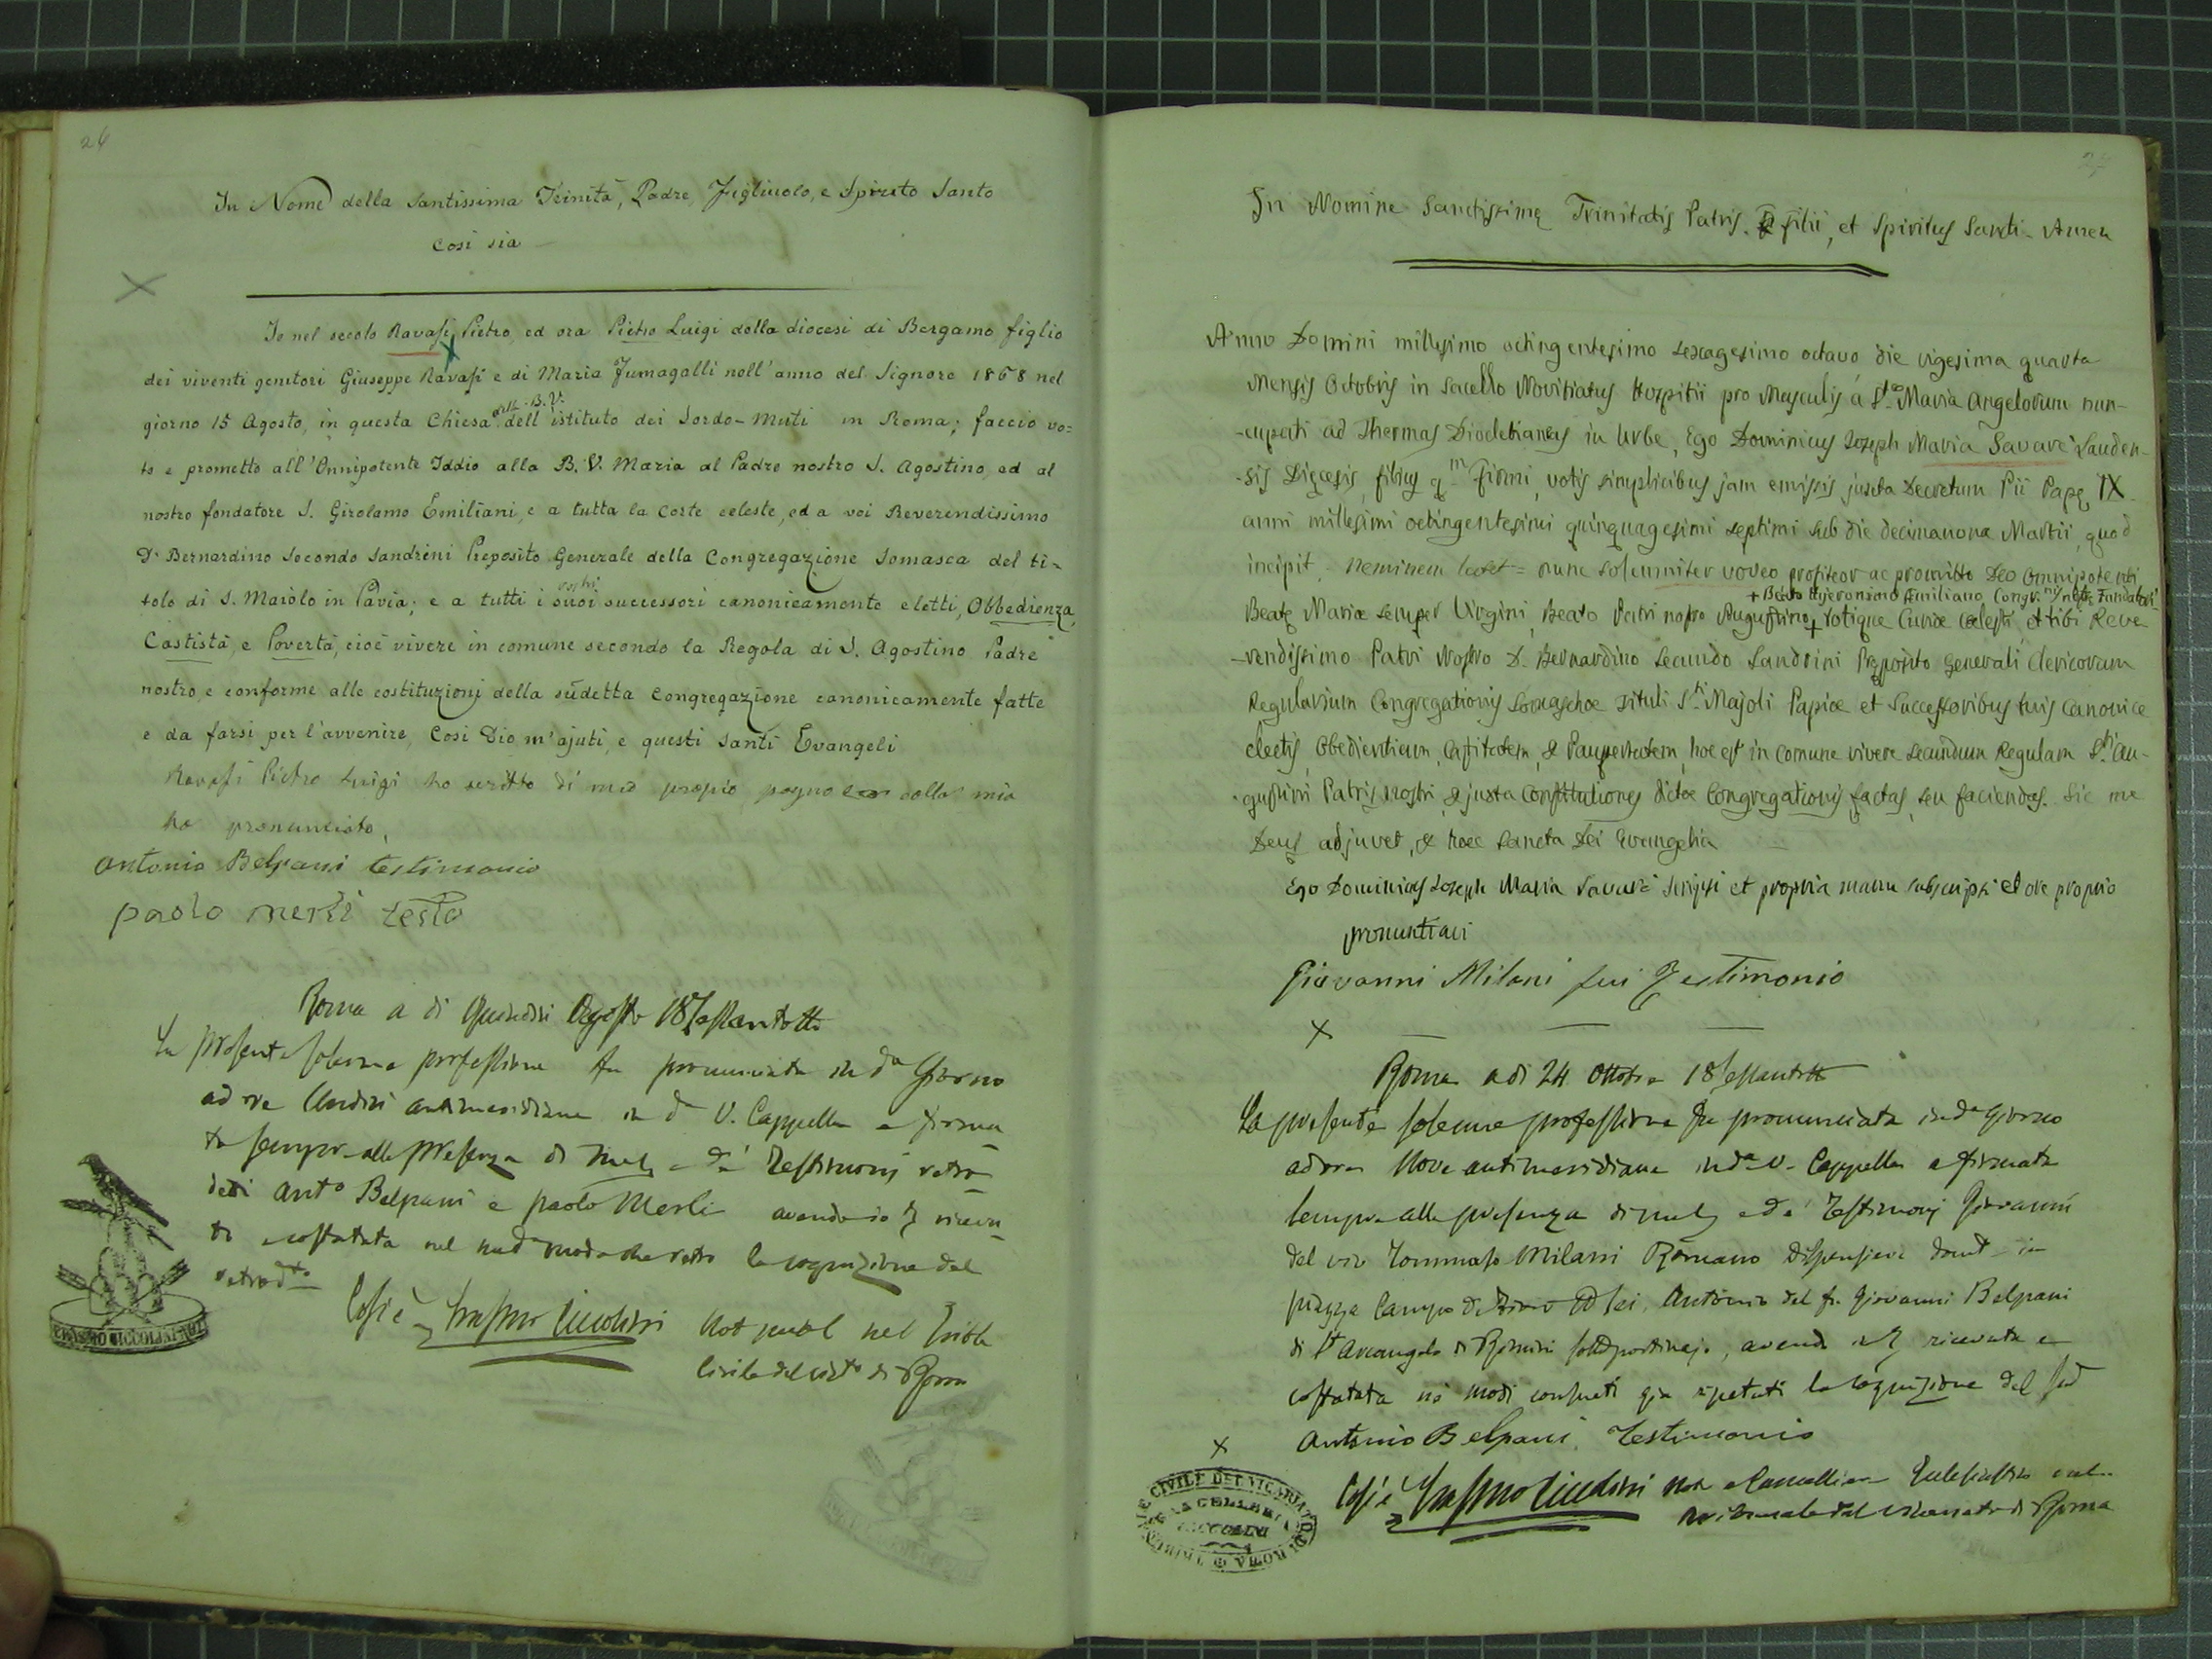 26
In Nome della Santissima Trinità, Padre, Figliuolo, e Spirito Santo
Così sia
Io nel secolo Ravasi Pietro, ed ora Pietro Luigi della diocesi di Bergamo figlio
dei viventi genitori Giuseppe Ravasi e di Maria Fumagalli nell'anno del Signore 1868 nel
giorno 15 Agosto, in questa Chiesa della B.V. dell'istituto dei Sordo-Muti in Roma; faccio vo=
to e prometto all'Onnipotente Iddio alla B. V. Maria al Padre nostro S. Agostino, ed al
nostro fondatore S. Girolamo Emiliani, e a tutta la Corte celeste, ed a voi Reverendissimo
D. Bernardino Secondo Sandrini Preposito Generale della Congregazione Somasca del ti-
tolo di S. Maiolo in Pavia; e a tutti i suoi vostri successori canonicamente eletti, Obbedienza,
Castistà, e Povertà, cioè vivere in comune secondo la Regola di S. Agostino Padre
nostro, e conforme alle costituzioni della sudetta Congregazione canonicamente fatte
e da farsi per l'avvenire, Così Dio m'ajuti, e questi Santi Evangeli
Ravasi Pietro Luigi ho scritto di mio propio pugno colla mia
ho pronunciato.
Antonio Belpani testimonio
paolo merli testo
Roma a di Quindici Agosto 18
La presente solenne professione fu pronunciata in do giorno
ad ore Undici antimeridiane in da V. Cappella e firma
ta sempre alla presenza di me e de' Testimonj retro
detti Anto Belpani e paolo Merli avendo io
e costatata nel la cognizione del
retrodto
Così è Erasmo Ciccolini Not publ nel Trible
Civile del Victo di Roma
ERASMO CICCOLINI NOT
27
In Nomine Sanctissimę Trinitatis Patris, Filii, et Spiritus Sancti - Amen
Anno Domini millesimo octingentesimo sexagesimo octavo, die vigesima quarta
Mensis Octobris in sacello Novitiatus Hospitii pro Masculis a Sta Maria Angelorum nun-
-cupati ad Thermas Diocletianas in Urbe, Ego Dominicus Joseph Maria Savarè Lauden-
-sis Dięcesis, filius qm Firmi, votis simplicibus jam emissis juxta Decretum Pii Papę IX
anni millesimi octingentesimi quinquagesimi septimi sub die decimanona Martii, quod
incipit = Neminem latet = nunc solemniter voveo profiteor ac promitto Deo Omnipotenti
+ Beato Hyeronimo Emiliano Congr.nis nostrę Fundatori
Beatę Mariæ semper Virgini, Beato Patri nostro Augustino + totique Curiæ Cœlesti, et tibi Reve
-rendissimo Patri Nostro D. Bernardino Secundo Sandrini Pręposito Generali Clericorum
Regularium Congregationis Somaschæ tituli Sti Majoli Papiæ et Successoribus tuis Canonice
electis, Obedientiam, Castitatem, & Paupertatem, hoc est in comune vivere secundum Regulam Sti Au-
-gustini Patris nostri, & juxta Constitutiones dictæ Congregationis factas, seu faciendas. Sic me
Deus adjuvet, & hæc Sancta Dei Evangelia
Ego Dominicus Joseph Maria Savarè scripsi et propria manu subscripsi et ore proprio
pronuntiavi
Giovanni Milani fui Testimonio
Roma a di 24 Ottobre 18
La presente solenne professione fu pronunciata in do giorno
ad ore Nove antimeridiane in da V. Cappella e firmata
sempre alla presenza di me e de' Testimonj Giovanni
del vivo Tommaso Milani Romano
piazza Campo di Antonio del fu Giovanni Belpani
di St Arcangelo di Rimini sottoportinajo, avendo ricevuta e
costatata ne' modi consueti già ripetuti la cognizione del
Antonio Belpani Testimonio
Così è Erasmo Ciccolini Not e Cancelliere nel
Tribunale del Vicariato di Roma
TRIBUNALE CIVILE DEL VICARIATO DI ROMA
CANCELLERIA
CICCOLINI